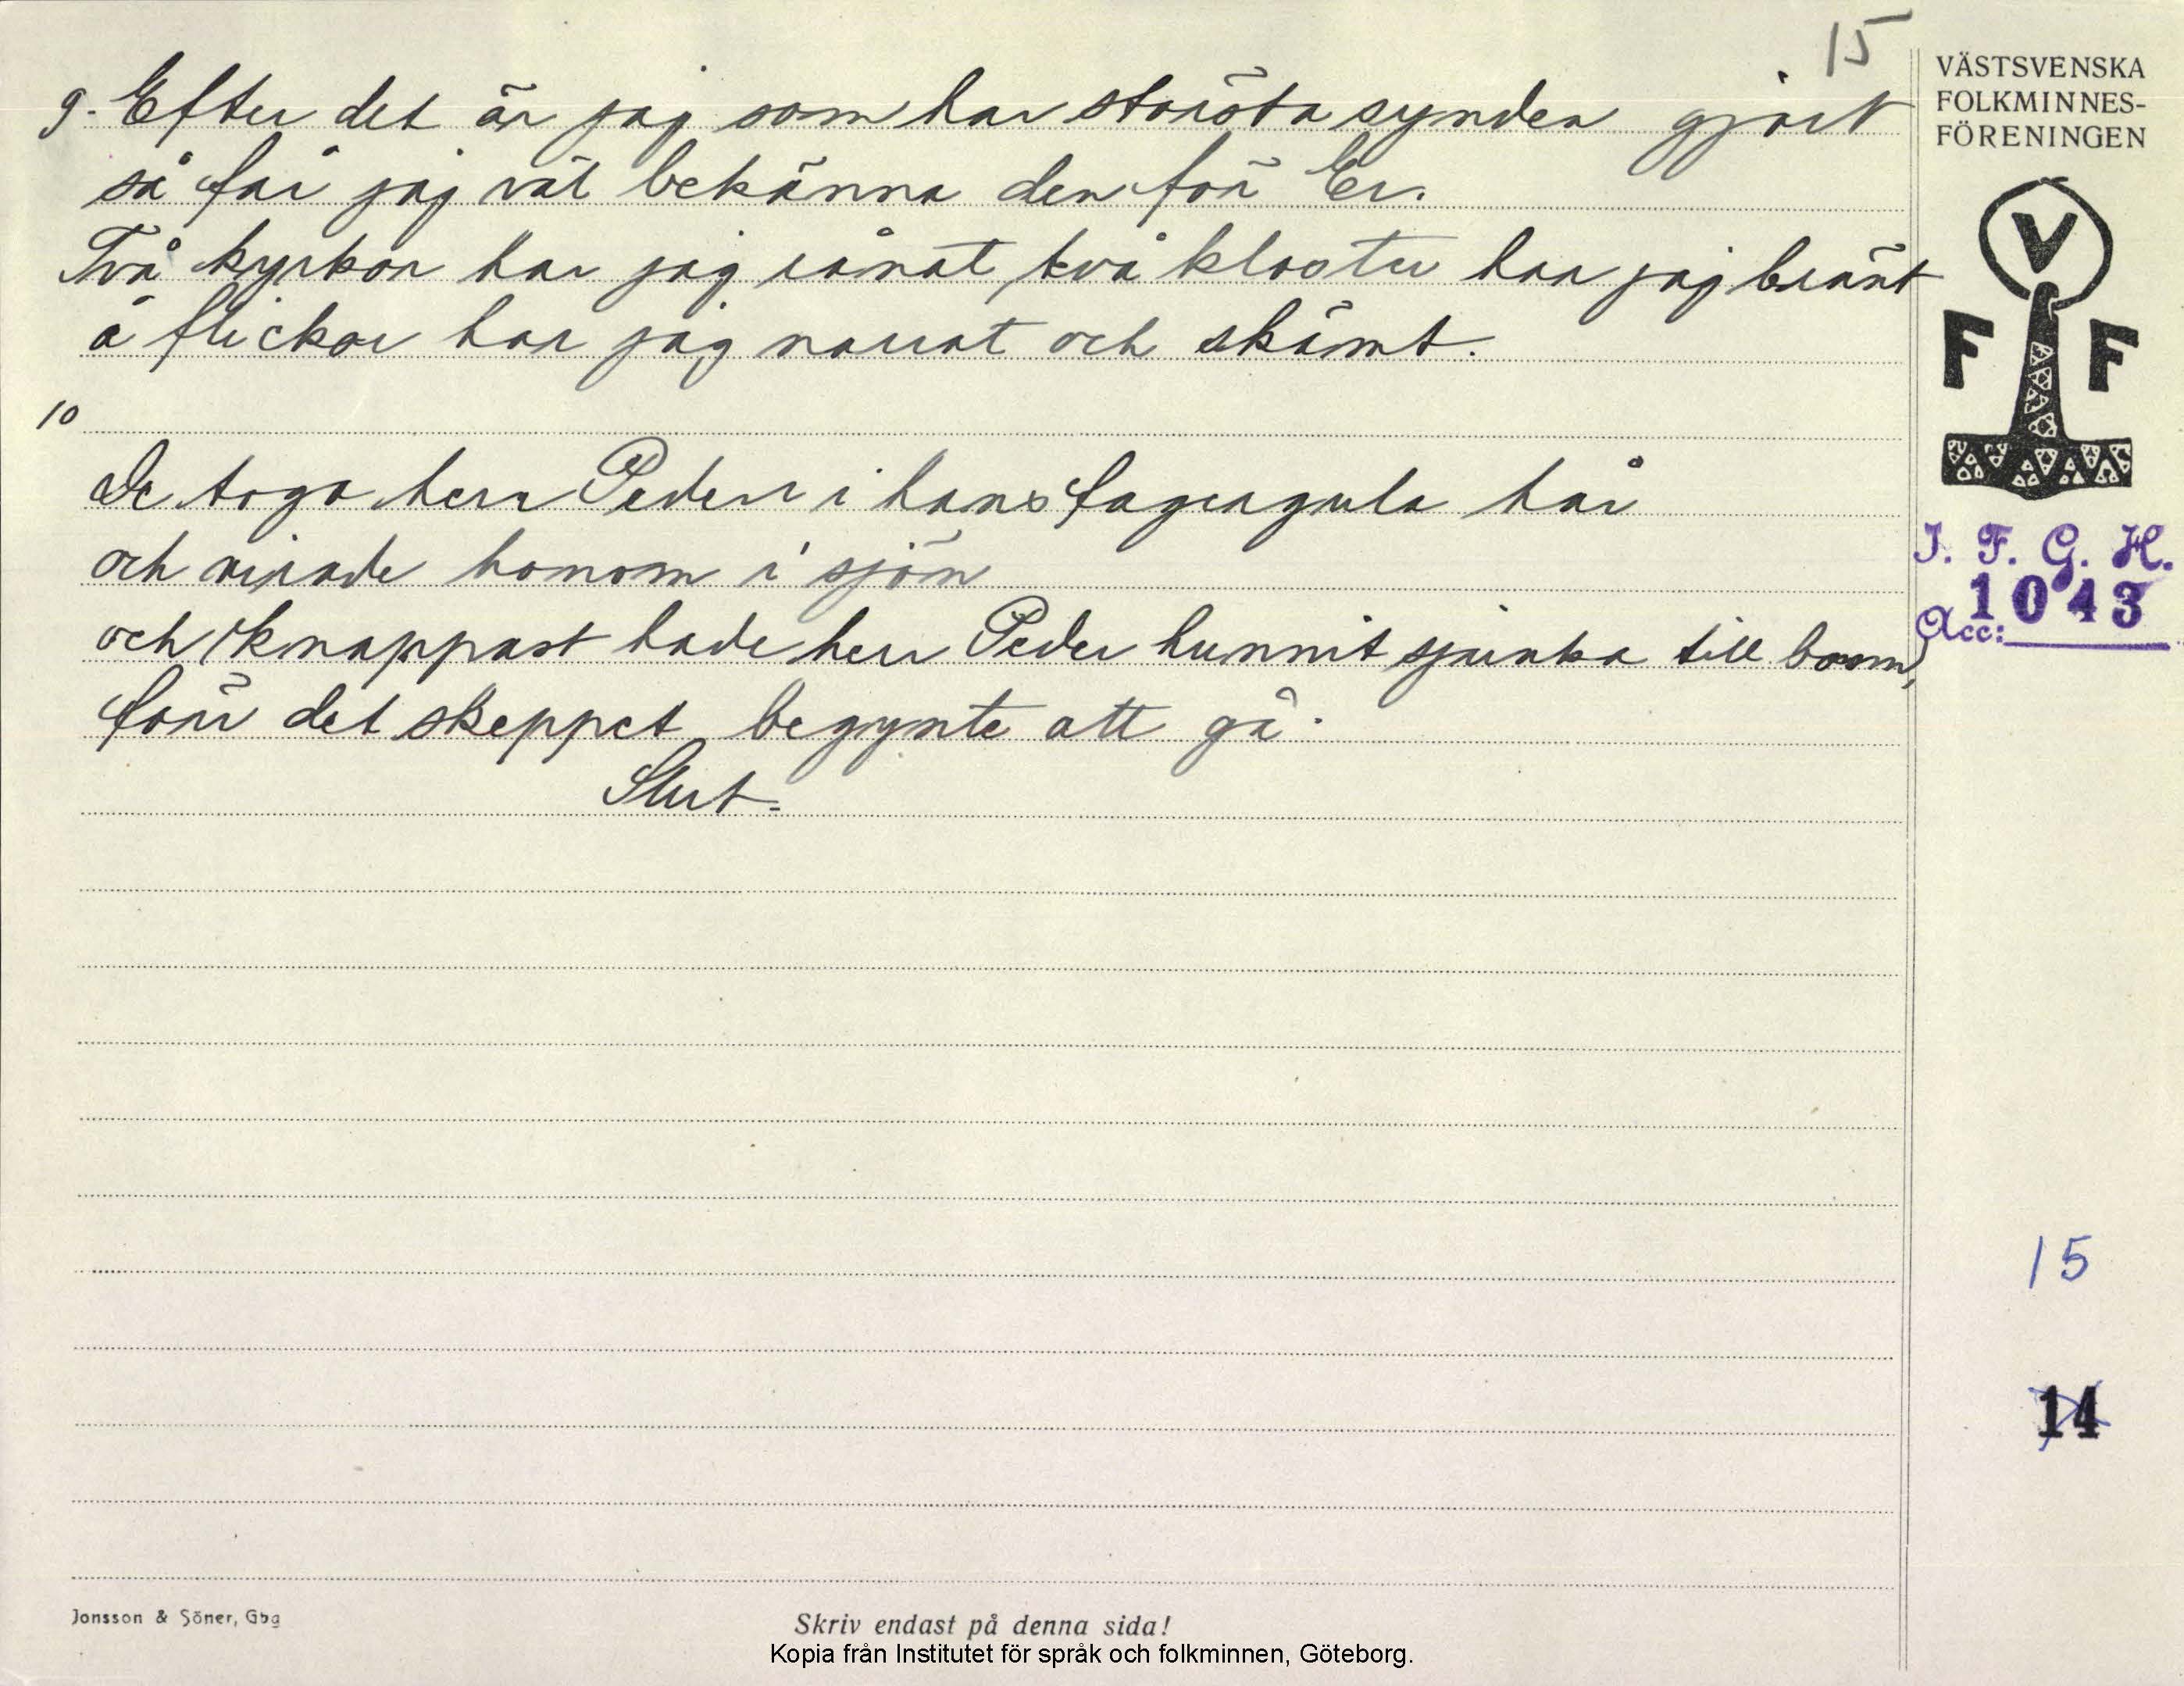 15
VÄSTSVENSKA
FOLKMINNES-
FÖRENINGEN
9. Efter det är jag som har största synden gjort
så får jag väl bekänna den för Er.
Två kyrkor har jag rånat, två kloster har jag bränt
å flickor har jag narrat och skämt.
V
F F
10
De togo herr Peder i hans fagragula hår
och virade honom i sjön
I. F. G. H.
1043
Acc:
och knappast hade herr Peder hunnit sjunka till boom,
förr det skeppet begynte att gå.
Slut.
15
14
Jonsson & Söner, Gbg
Skriv endast på denna sida!
Kopia från Institutet för språk och folkminnen, Göteborg.